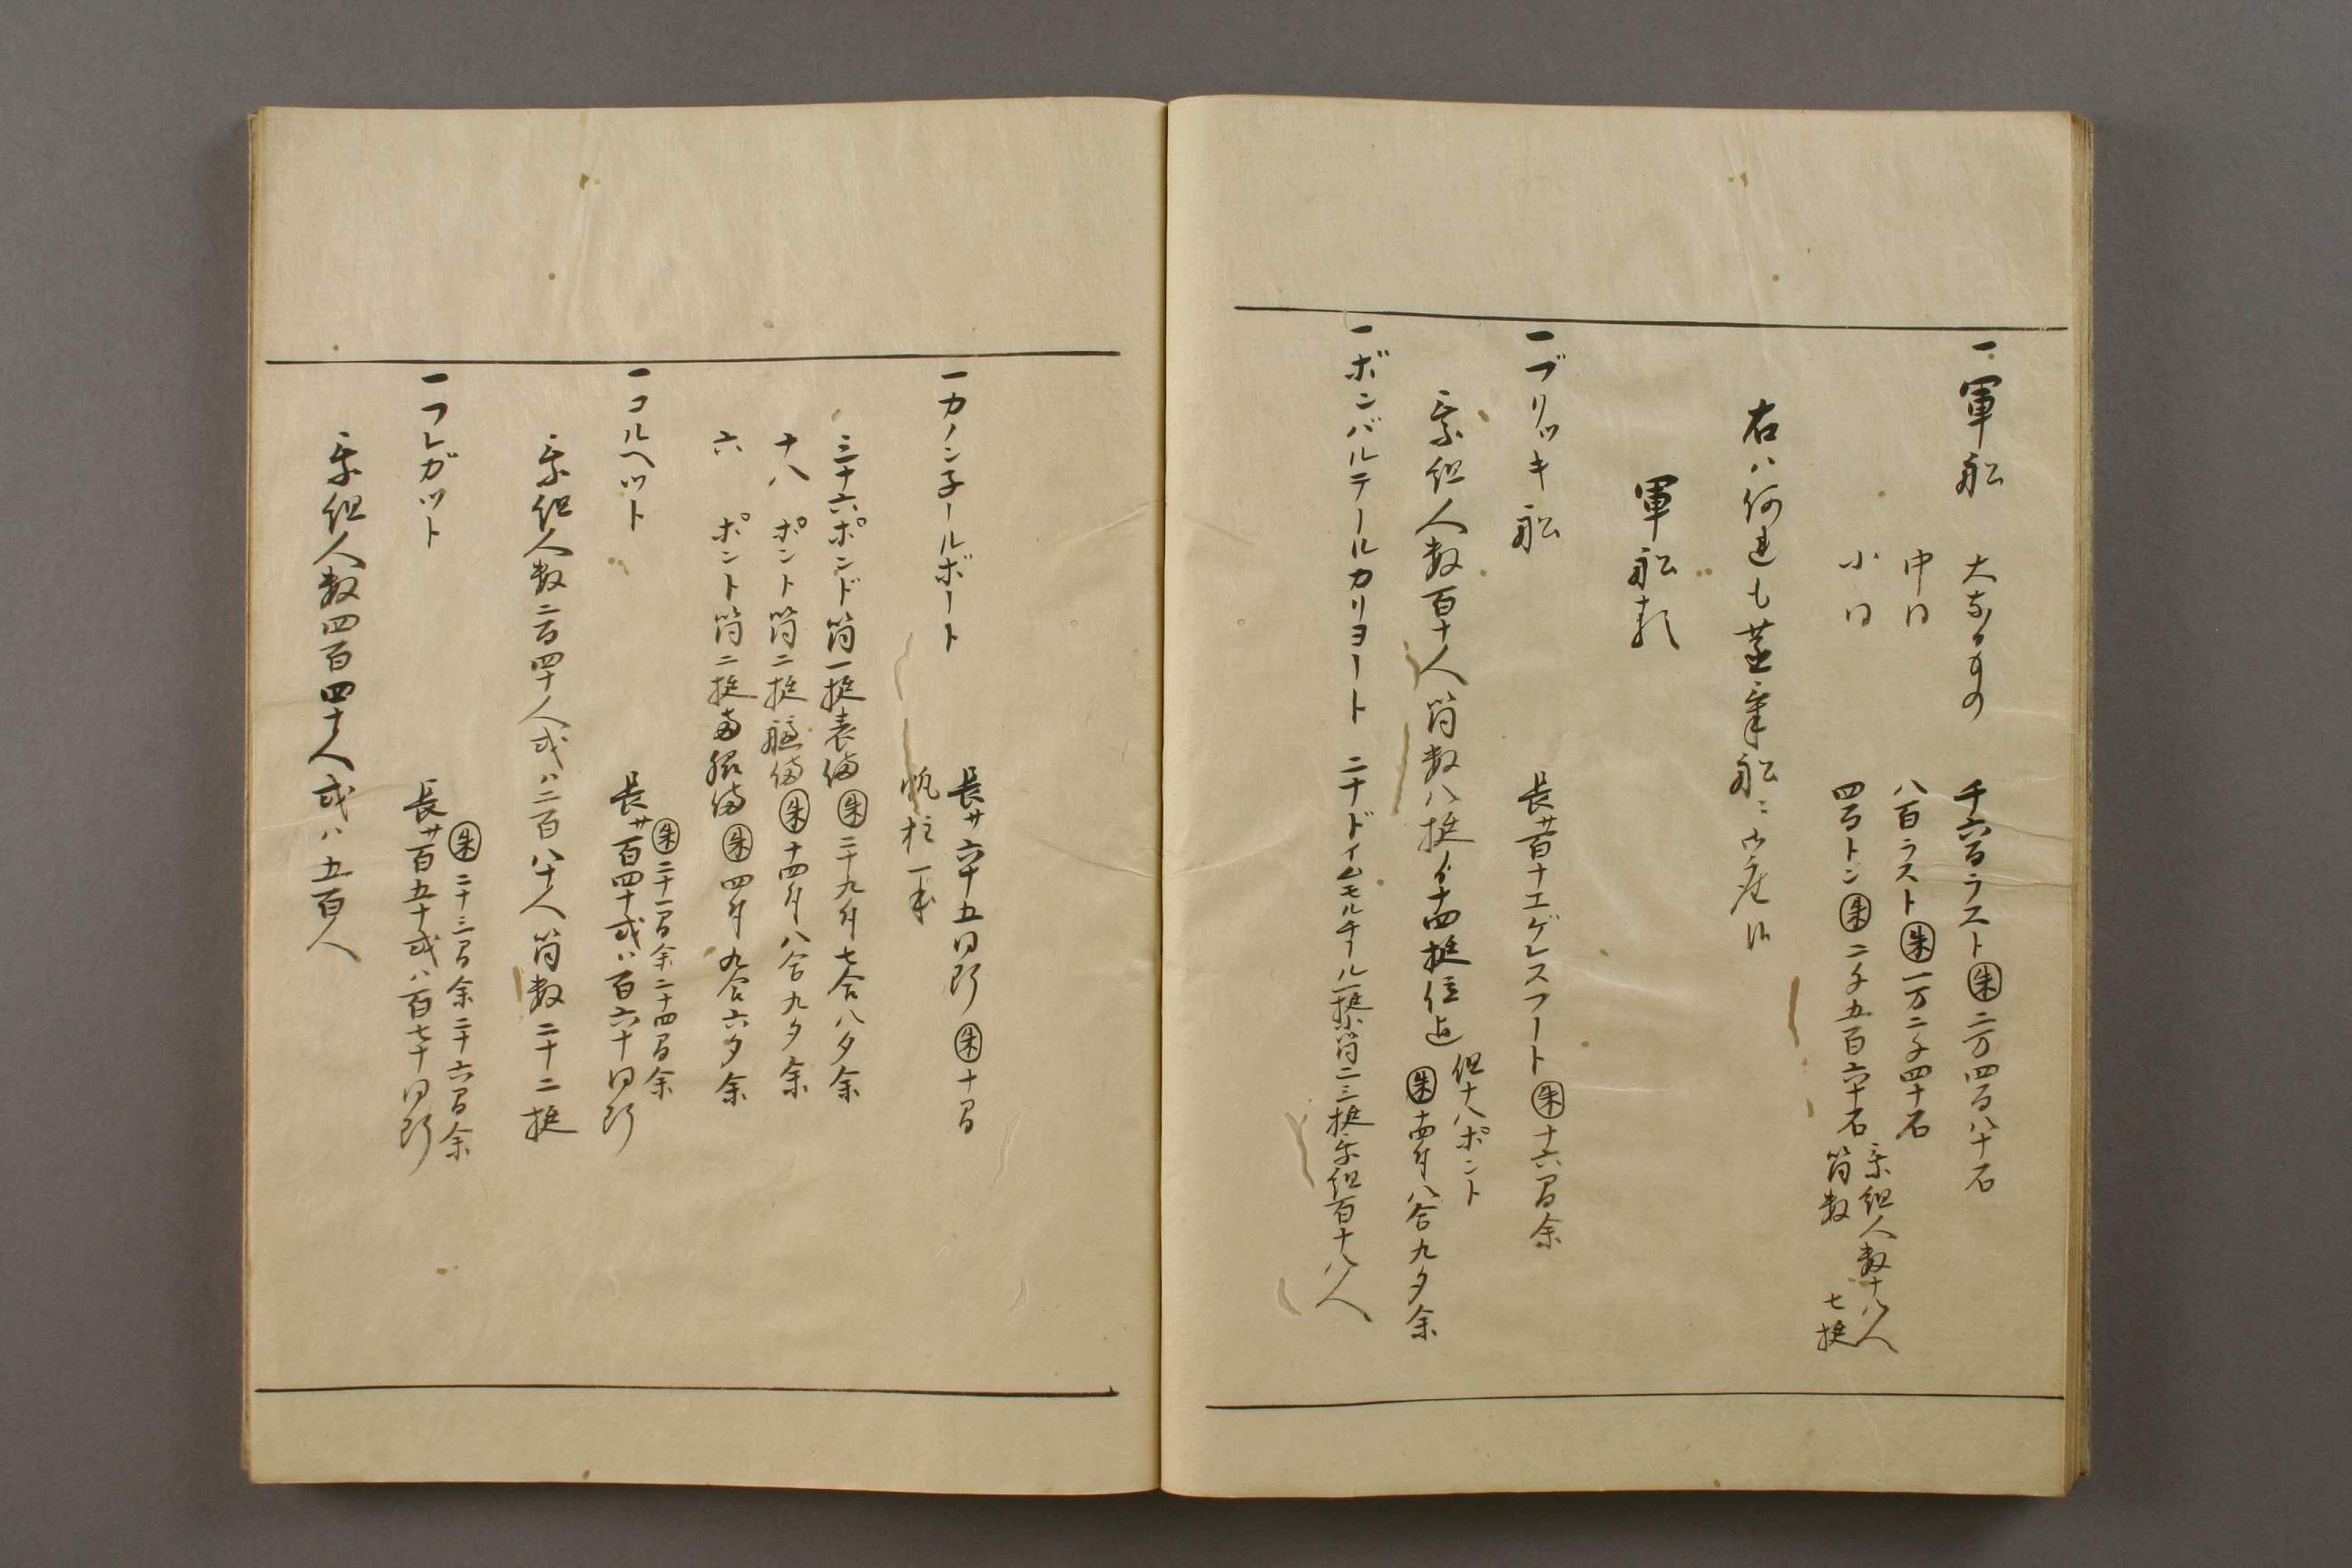 一軍船 大なるもの 千六百ラスト㊍二万四百八十石
中同 八百ラスト 一万二千四十石
小同 四百トン 二千五百六十石 乗組人数十八人
筒数 七挺
右ハ何連も蒸気船ニ御座候
軍船類
一ブリッキ船 長サ百十エゲレスフート 十六間余
乗組人数百十人筒数八挺ゟ十四挺位迄 但十八ポント
十四斤八合九夕余
一ボンバルテールカリヨート 二十ドイムモルチール一挺小筒二三挺乗組百十八人
一カノン子ールボート 長サ六十五同断 十間
帆柱一本
三十六ポンド筒一挺表備 二十九斤七合八夕余
十八 ポント筒二挺艫備 十四斤八合九夕余
六 ポント筒二挺両脇備 四斤九合六夕余
一コルヘット 二十一間余二十四間余
長サ百四十或ハ百六十同断
乗組人数二百四十人或ハ二百八十人筒数二十二挺
一フレガット 二十三間余二十六間余
長サ百五十或ハ百七十同断
乗組人数四百四十人或ハ五百人